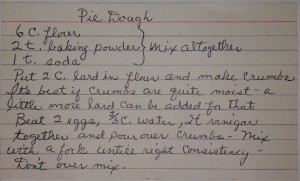 Pie Dough
6 C. flour
2 t. baking powder } Mix altogether
1 t. soda
Put 2 C. lard in flour and make crumbs
Its best if crumbs are quite moist - a
little more lard can be added for that
Beat 2 eggs, ⅔ C. water, 2t vinegar
together and pour over crumbs - Mix
with a fork until right consistency -
Don't over mix.